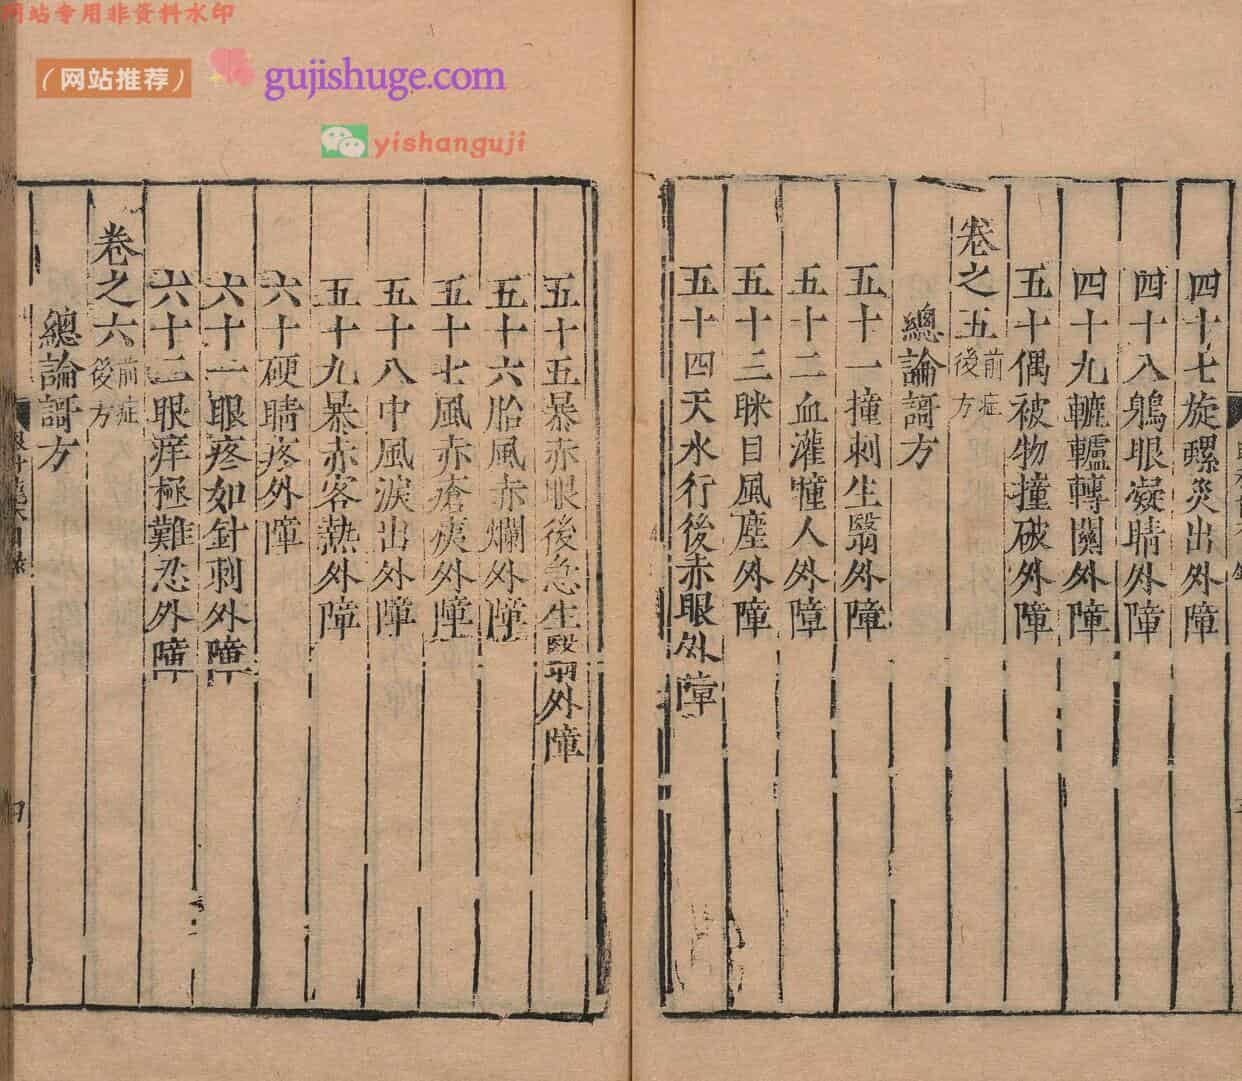 网站专用非资料水印
（网站推荐）
gujishuge.com
yishanguji
四十七旋螺災出外障
四十八鶻眼凝睛外障
四十九轆轤轉關外障
五十偶被物撞破外障
卷之五前症後方
總論謌方
五十一撞刺生翳外障
五十二血灌瞳人外障
五十三眯目風塵外障
五十四天水行後赤眼外障
五十五暴赤眼後急生翳外障
五十六胎風赤爛外障
五十七風赤瘡痍外障
五十八中風淚出外障
五十九暴赤客熱外障
六十硬睛疼外障
六十一眼疼如針刺外障
六十二眼痒極難忍外障
卷之六前症後方
總論謌方